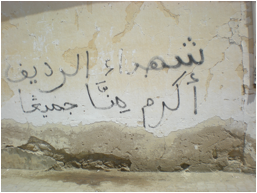 شهداء الرديف
أكرم منّا جميعًا